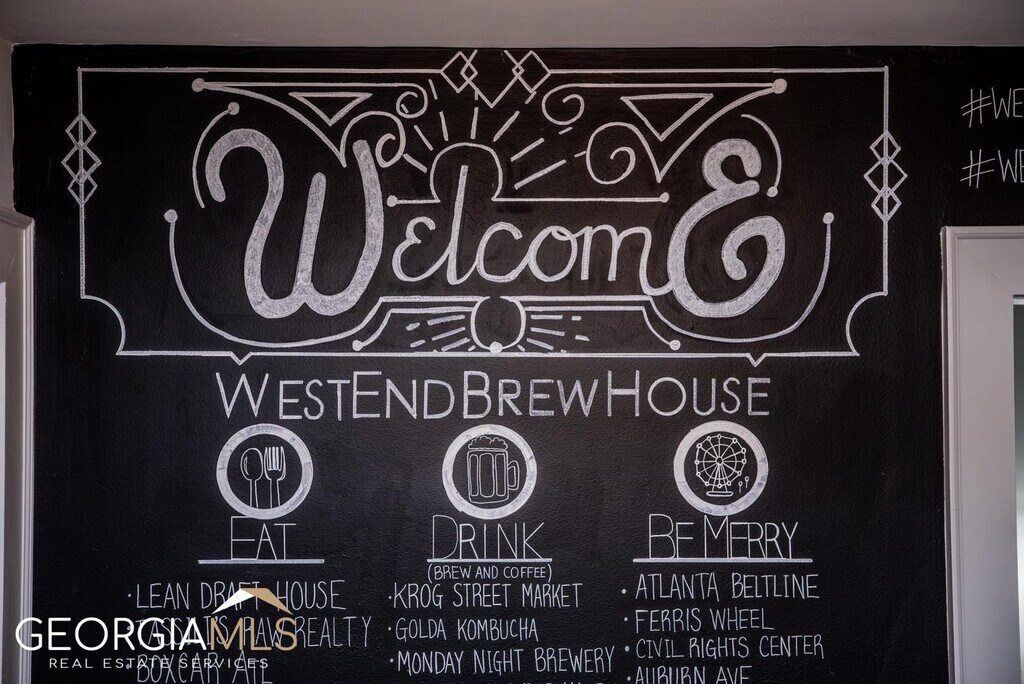 WELCOME
#WE
#WE
WESTENDBREWHOUSE
EAT
DRINK
BE MERRY
(BREW AND COFFEE)
· LEAN DRAFT HOUSE
REALTY
BOXCAR ATL
· KROG STREET MARKET
· GOLDA KOMBUCHA
· MONDAY NIGHT BREWERY
· ATLANTA BELTLINE
· FERRIS WHEEL
· CIVIL RIGHTS CENTER
· AUBURN AVE
GEORGIAMLS
REAL ESTATE SERVICES